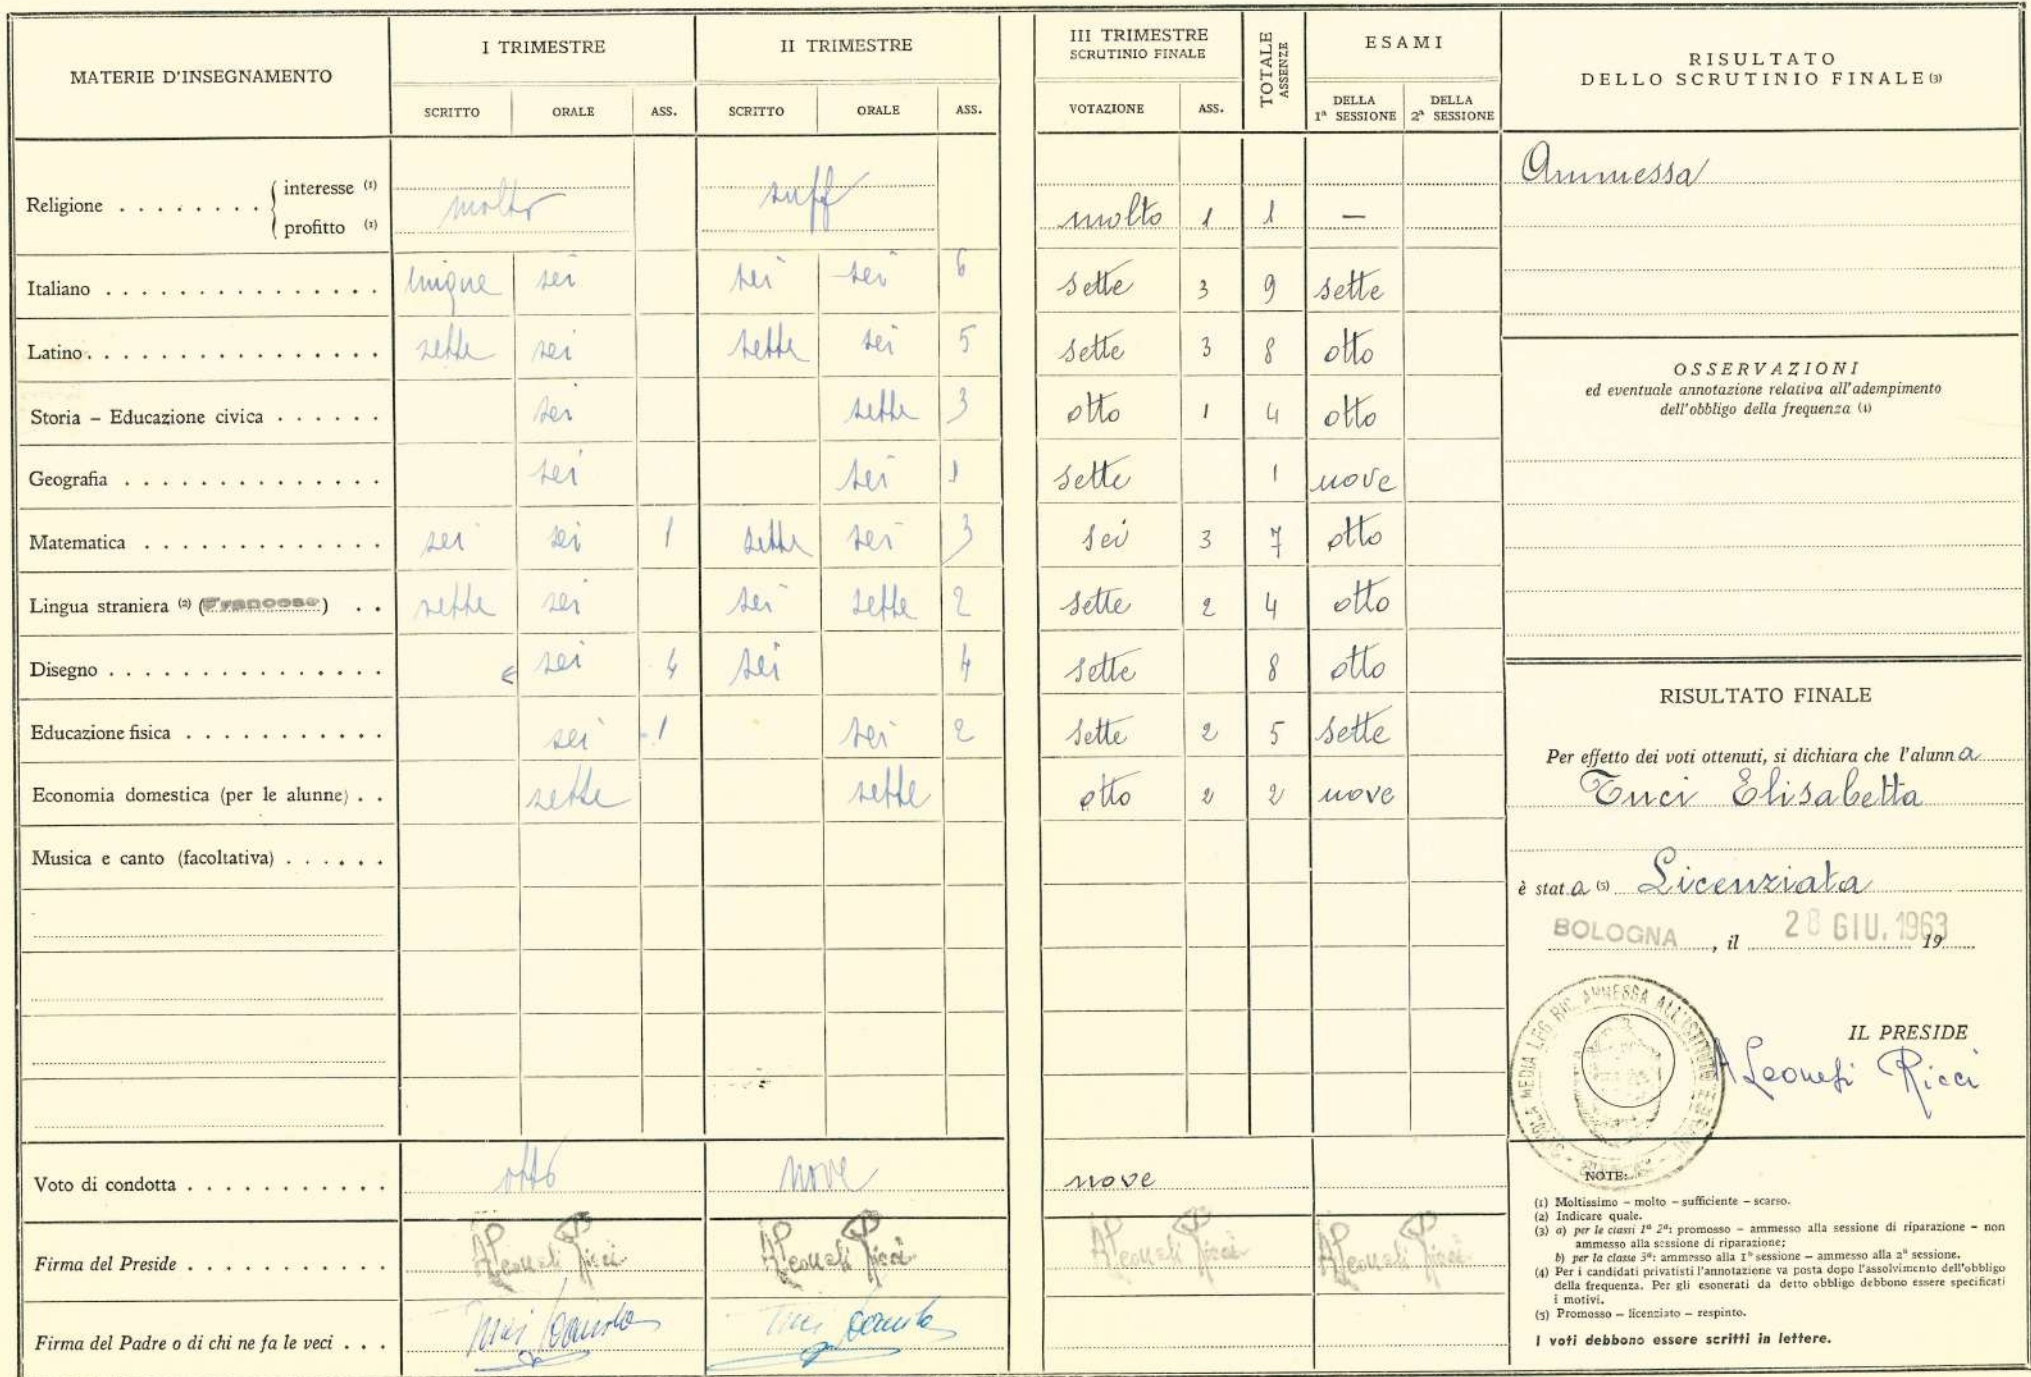 MATERIE D'INSEGNAMENTO
I TRIMESTRE
II TRIMESTRE
III TRIMESTRE
SCRUTINIO FINALE
TOTALE
ASSENZE
ESAMI
RISULTATO
DELLO SCRUTINIO FINALE (3)
SCRITTO ORALE ASS. SCRITTO ORALE ASS. VOTAZIONE ASS. DELLA 1ª SESSIONE DELLA 2ª SESSIONE
Religione . . . . . . . . interesse (1)
profitto (1)
molto suff molto 1 1 —
Ammessa
Italiano . . . . . . . . . . . . . . . cinque sei sei sei 6 sette 3 9 sette
Latino . . . . . . . . . . . . . . . . sette sei sette sei 5 sette 3 8 otto
Storia – Educazione civica . . . . . . sei sette 3 otto 1 4 otto
Geografia . . . . . . . . . . . . . . sei sei 1 sette 1 nove
Matematica . . . . . . . . . . . . . sei sei 1 sette sei 3 sei 3 7 otto
Lingua straniera (2) (Francese) . . sette sei sei sette 2 sette 2 4 otto
Disegno . . . . . . . . . . . . . . . sei 4 sei 4 sette 8 otto
Educazione fisica . . . . . . . . . . . sei 1 sei 2 sette 2 5 sette
Economia domestica (per le alunne) . . sette sette otto 2 2 nove
Musica e canto (facoltativa) . . . . . .
Voto di condotta . . . . . . . . . . . otto nove nove
Firma del Preside . . . . . . . . . . . ALeonesi Ricci ALeonesi Ricci ALeonesi Ricci ALeonesi Ricci
Firma del Padre o di chi ne fa le veci . . .
OSSERVAZIONI
ed eventuale annotazione relativa all'adempimento
dell'obbligo della frequenza (4)
RISULTATO FINALE
Per effetto dei voti ottenuti, si dichiara che l'alunna
Tuci Elisabetta
è stata (5) Licenziata
BOLOGNA, il 28 GIU. 1963 19
SCUOLA MEDIA LEG. RIC. ANNESSA ALL'ISTITUTO
IL PRESIDE
ALeonesi Ricci
NOTE:
(1) Moltissimo – molto – sufficiente – scarso.
(2) Indicare quale.
(3) a) per le classi 1ª 2ª: promosso – ammesso alla sessione di riparazione – non
ammesso alla sessione di riparazione;
b) per la classe 3ª: ammesso alla 1ª sessione – ammesso alla 2ª sessione.
(4) Per i candidati privatisti l'annotazione va posta dopo l'assolvimento dell'obbligo
della frequenza. Per gli esonerati da detto obbligo debbono essere specificati
i motivi.
(5) Promosso – licenziato – respinto.
I voti debbono essere scritti in lettere.